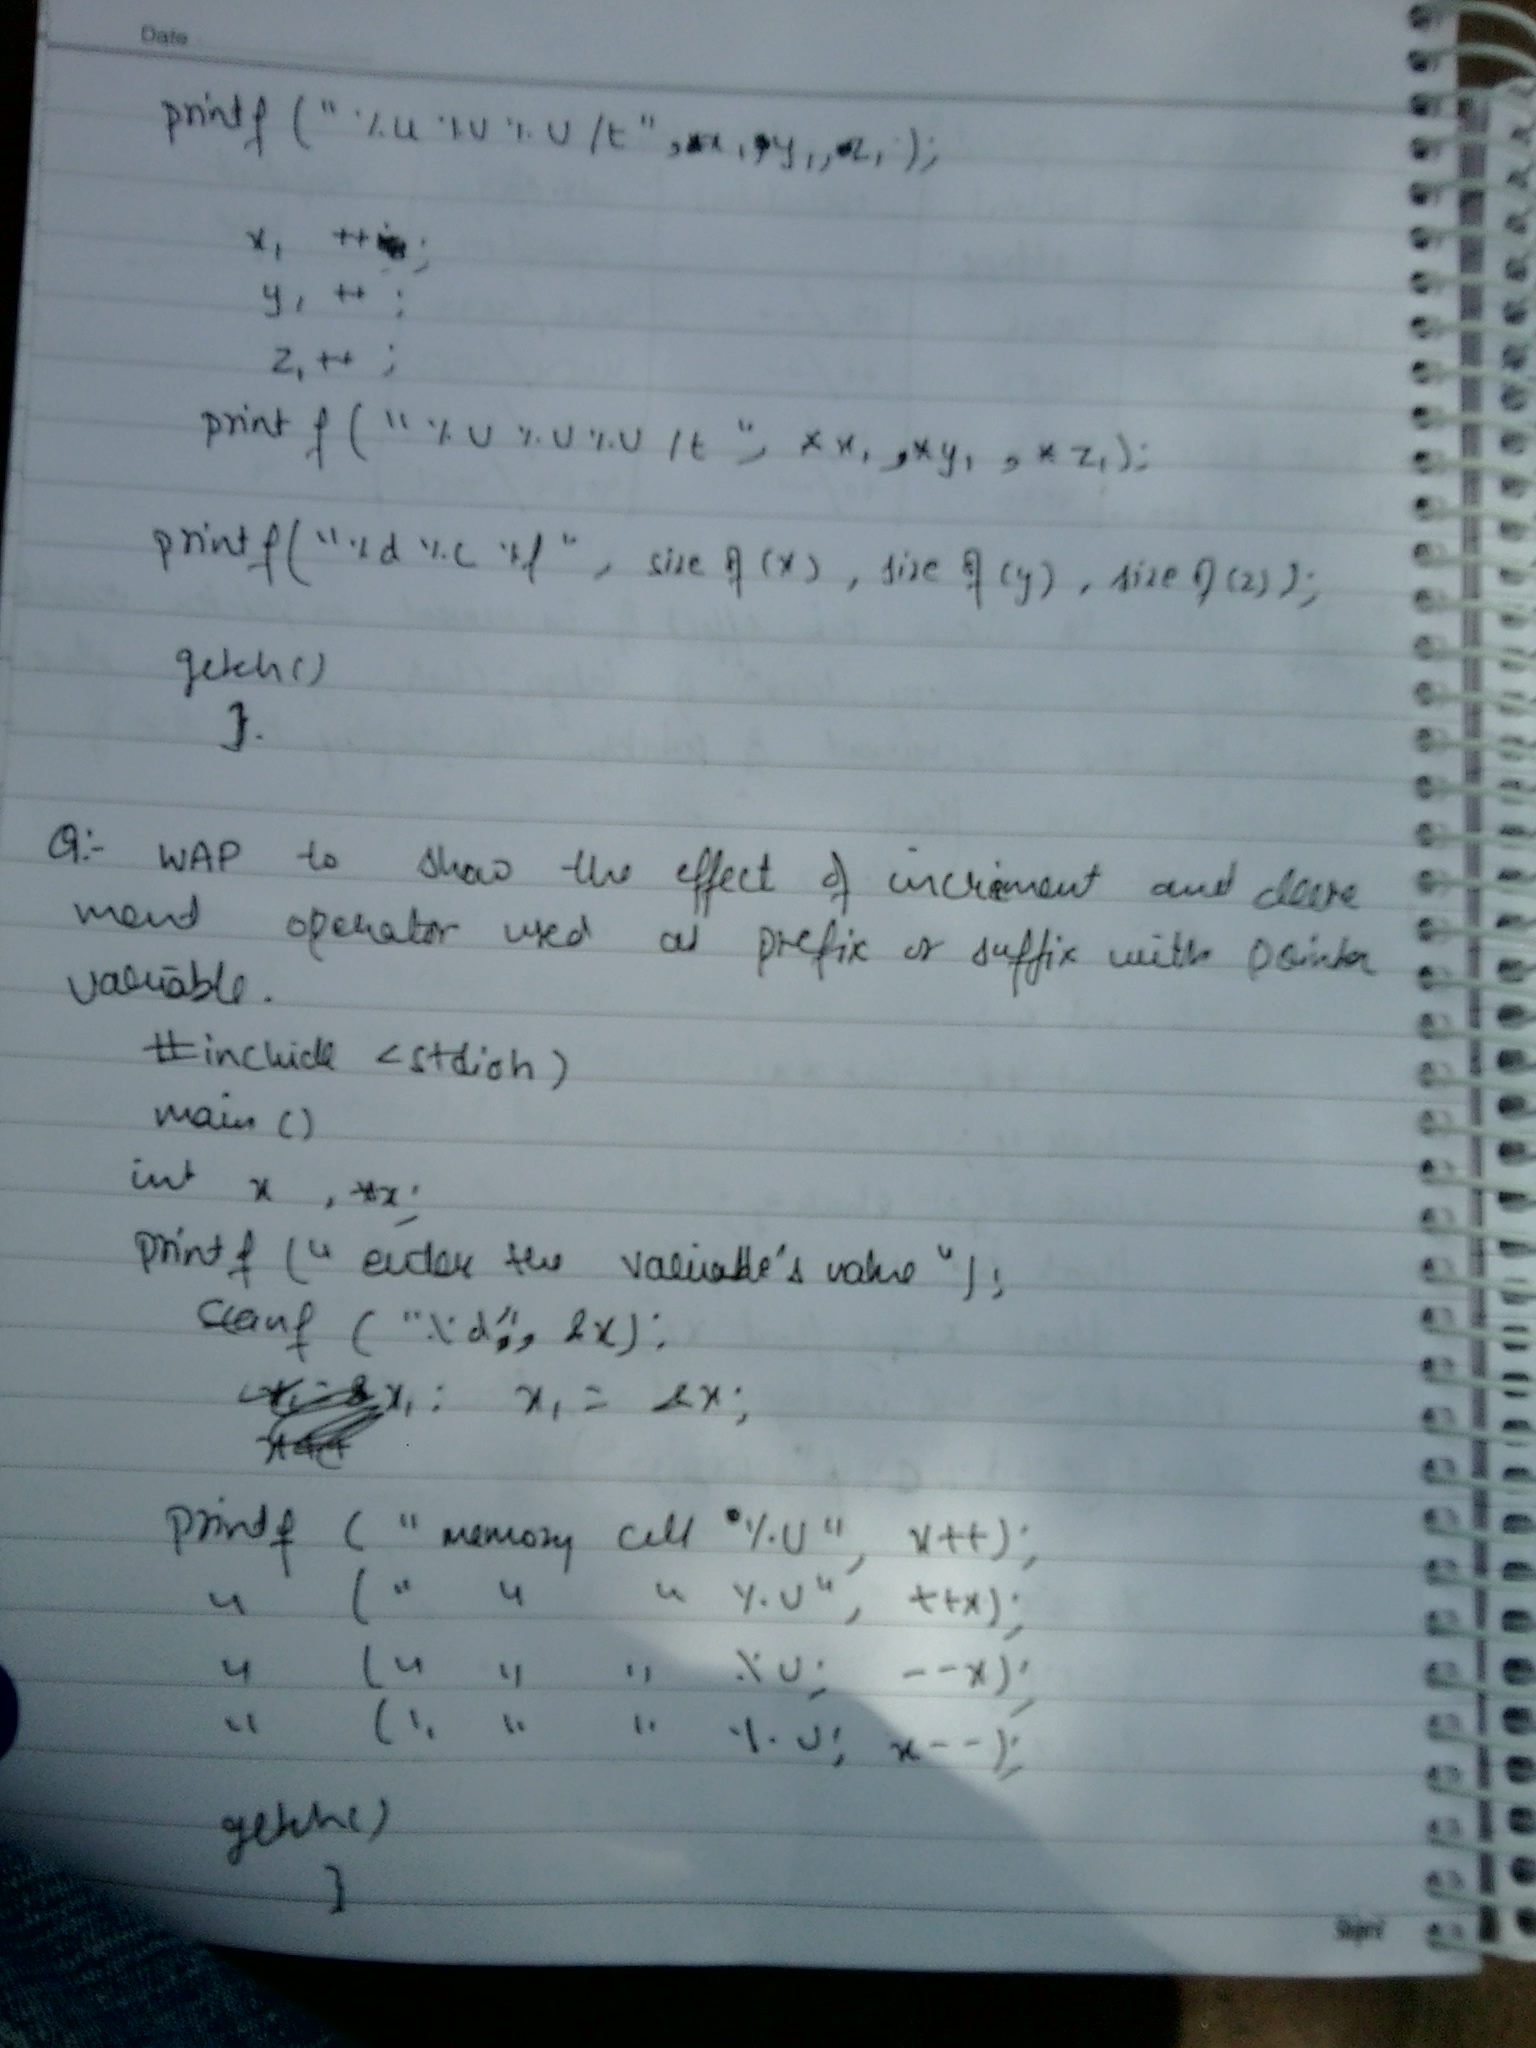 Date
printf ("%u %u %u /t", x1, y1, z1);
x1 ++ ;
y1 ++ ;
z1 ++ ;
printf ("%u %u %u /t", *x1, *y1, *z1);
printf("%d %c %f", size of (x), size of (y), size of (z));
getch()
}.
Q:- WAP to show the effect of increment and decre
ment operator used as prefix or suffix with pointer
variable.
#include <stdioh)
main ()
int x , *x;
printf (" enter the variable's value");
scanf ("%d", &x);
x1 : x1 = &x;
printf (" memory cell %u", x++);
" (" " " %u", ++x);
" (" " " %u; --x);
" (" " " %u; x--);
getch()
}